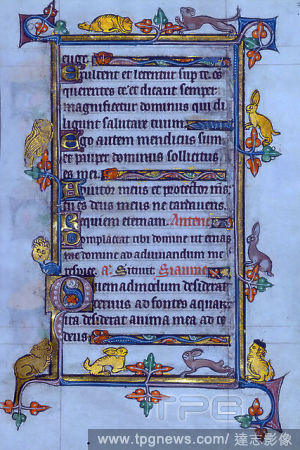 euge
Exultent et letentur sup te oēs
querentes te et dicant semper
magnificetur dominus qui di
ligunt salutare tuum.
Ego autem mendicus sum
et pauper dominus sollicitus
mei.
Adiutor meus et protector
tu es deus meus ne tardaueris.
Requiem eternam.
Complaceat tibi domine ut eruas
me domine ad adiuuandum me
respice. Sitiuit.
Quemadmodum desiderat
ceruus ad fontes aquar
ita desiderat anima mea ad te
deus
TPG
www.tpgnews.com/ 達志影像